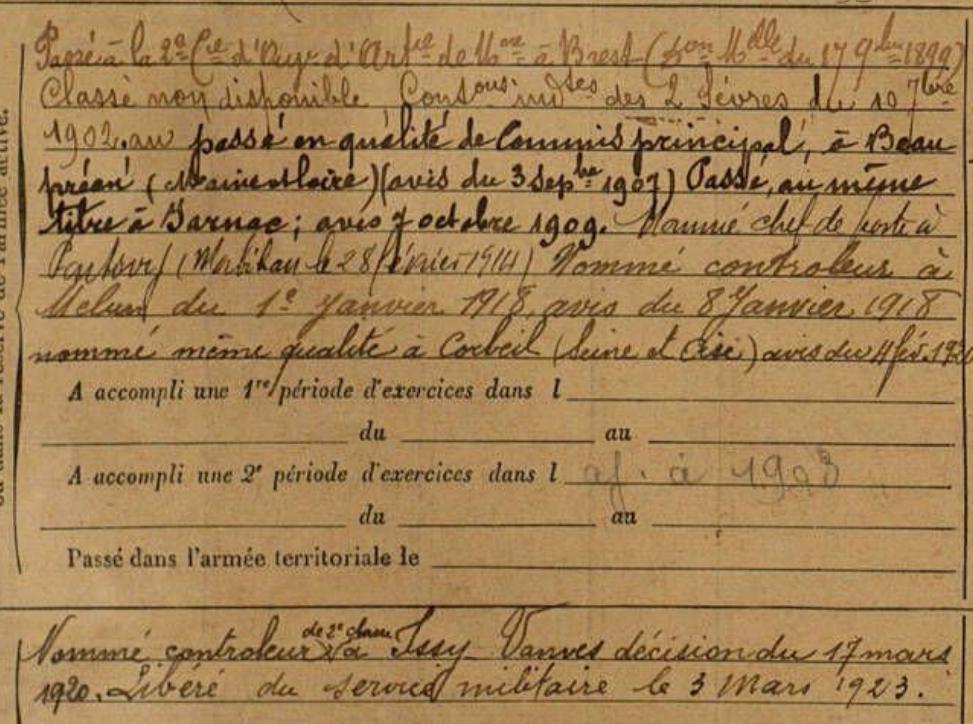 Passé à la 2e Cie d'Ouv. d'Artie de Mne à Brest (Don Mlle du 17 9bre 1899)
Classé non disponible Contons indtes des 2 Sèvres du 10 7bre
1902. au passé en qualité de Commis principal, à Beau
préau (Maine et Loire) (avis du 3 Sepbre 1907) Passé, au même
titre à Jarnac; avis 7 octobre 1909. Nommé chef de poste à
Pontivy (Morbihan le 28 février 1914) Nommé controleur à
Melun du 1e Janvier 1918, avis du 8 Janvier 1918
nommé même qualité à Corbeil (Seine et Oise) avis du 4 fév. 1920
A accompli une 1re période d'exercices dans l
du au
A accompli une 2e période d'exercices dans l af. à 1903
du au
Passé dans l'armée territoriale le
Nommé controleur de 2e classe à Issy Vanves décision du 17 mars
1920. Libéré du service militaire le 3 Mars 1923.